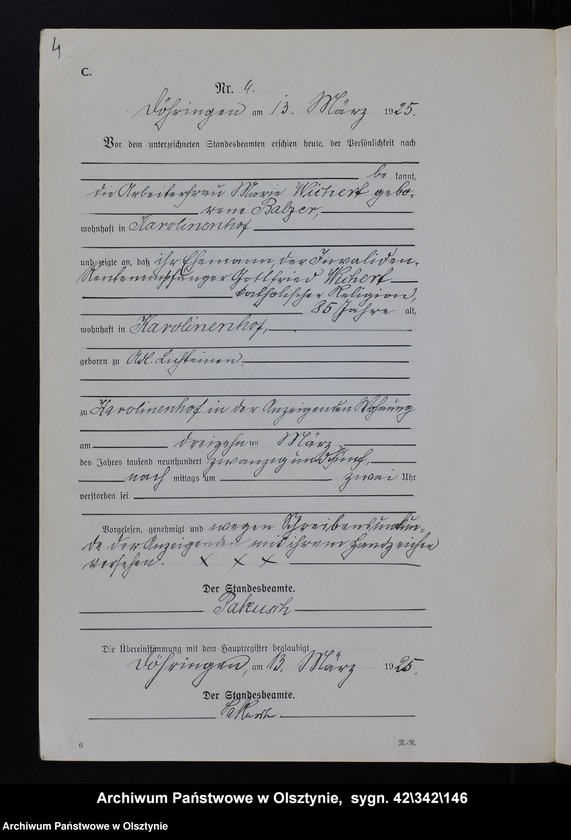 4
C.
Nr. 4.
Döhringen am 13. März 1925.
Vor dem unterzeichneten Standesbeamten erschien heute, der Persönlichkeit nach
be kannt,
die Arbeiterfrau Marie Wichert gebo-
rene Balzer,
wohnhaft in Karolinenhof
und zeigte an, daß ihr Ehemann, der Invaliden-
Rentenempfänger Gottfried Wichert
katholischer Religion,
85 Jahre alt,
wohnhaft in Karolinenhof,
geboren zu Adl. Lichteinen
zu Karolinenhof in der Anzeigenden Wohnung
am dreizehnten März
des Jahres tausend neunhundert zwanzig und fünf,
nach mittags um zwei Uhr
verstorben sei.
Vorgelesen, genehmigt und wegen Schreibensunkun-
de der Anzeigenden mit ihrem Handzeichen
versehen. x x x
Der Standesbeamte.
Pakusch
Die Übereinstimmung mit dem Hauptregister beglaubigt
Döhringen, am 13. März 1925.
Der Standesbeamte.
Pakusch
6 N.-R.
Archiwum Państwowe w Olsztynie, sygn. 42\342\146
Archiwum Państwowe w Olsztynie